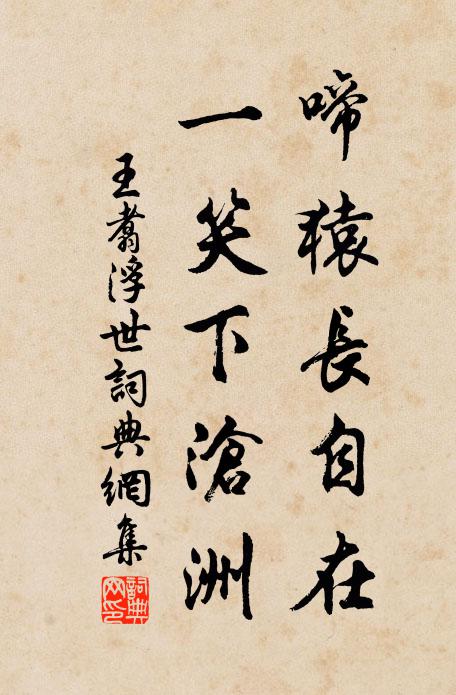 啼猿長自在
一笑下滄洲
王翥浮世詞典網集
詞典
网印